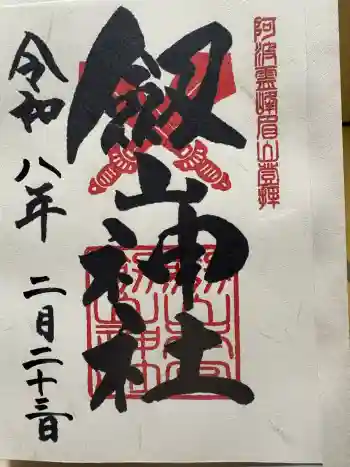 阿波霊峰眉山登拝
劔山神社
令和八年 二月二十三日